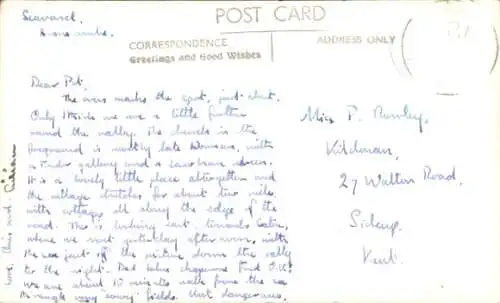 Seavarel,
POST CARD
CORRESPONDENCE
Greetings and Good Wishes
ADDRESS ONLY
Dear Pat,
The cross marks the spot, just about.
Only I think we are a little further
round the valley. The church in the
foreground is mostly late Norman, with
a Tudor gallery and a
It is a lovely little place altogether and
the village stretches for about two miles
with cottages all along the edge of the
road. This is looking east towards
where we went yesterday afternoon, with
the sea just off the picture down the valley
to the right. Dad
We are about 10 minutes walk from the sea
through very "cowy" fields. Not dangerous.
love, Chris and
Miss P. Rowley,
Kildonan,
27 Walton Road,
Sidcup,
Kent.